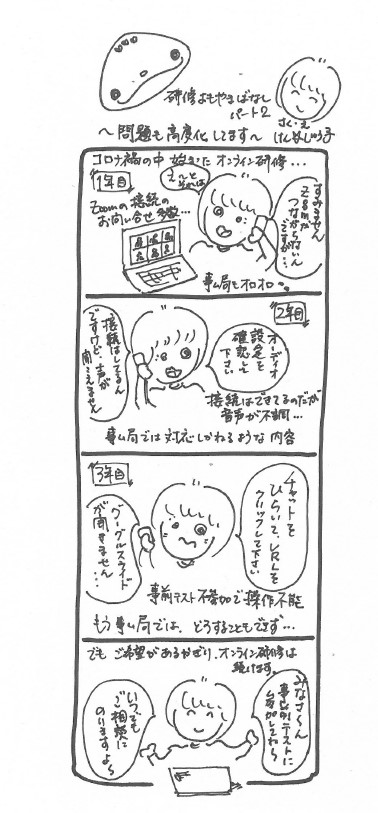 研修よもやまばなし
パート2
～問題も高度化してます～
さく・え
コロナ禍の中 始まった オンライン研修...
1年目
Zoomの接続の
お問い合せ多数...
えーと
それは
すみません
Zoomが
つながらないん
ですが...
事ム局もオロオロ
2年目
オーディオ
設定を
確認して
下さい
接続はしてるん
ですけど、声が
聞こえません
接続はできてるのだが
音声が不調...
事ム局では対応しかねるような内容
3年目
チャットを
ひらいて、URLを
クリックして下さい
グーグルスライド
が開きません...
事前テスト不参加で操作不能
もう事ム局では、どうすることもできず...
でも ご希望があるかぎり、オンライン研修は
続けます。
みなさ～ん
事前テストに
参加してね～
いつでも
ご相談に
のりますよ～